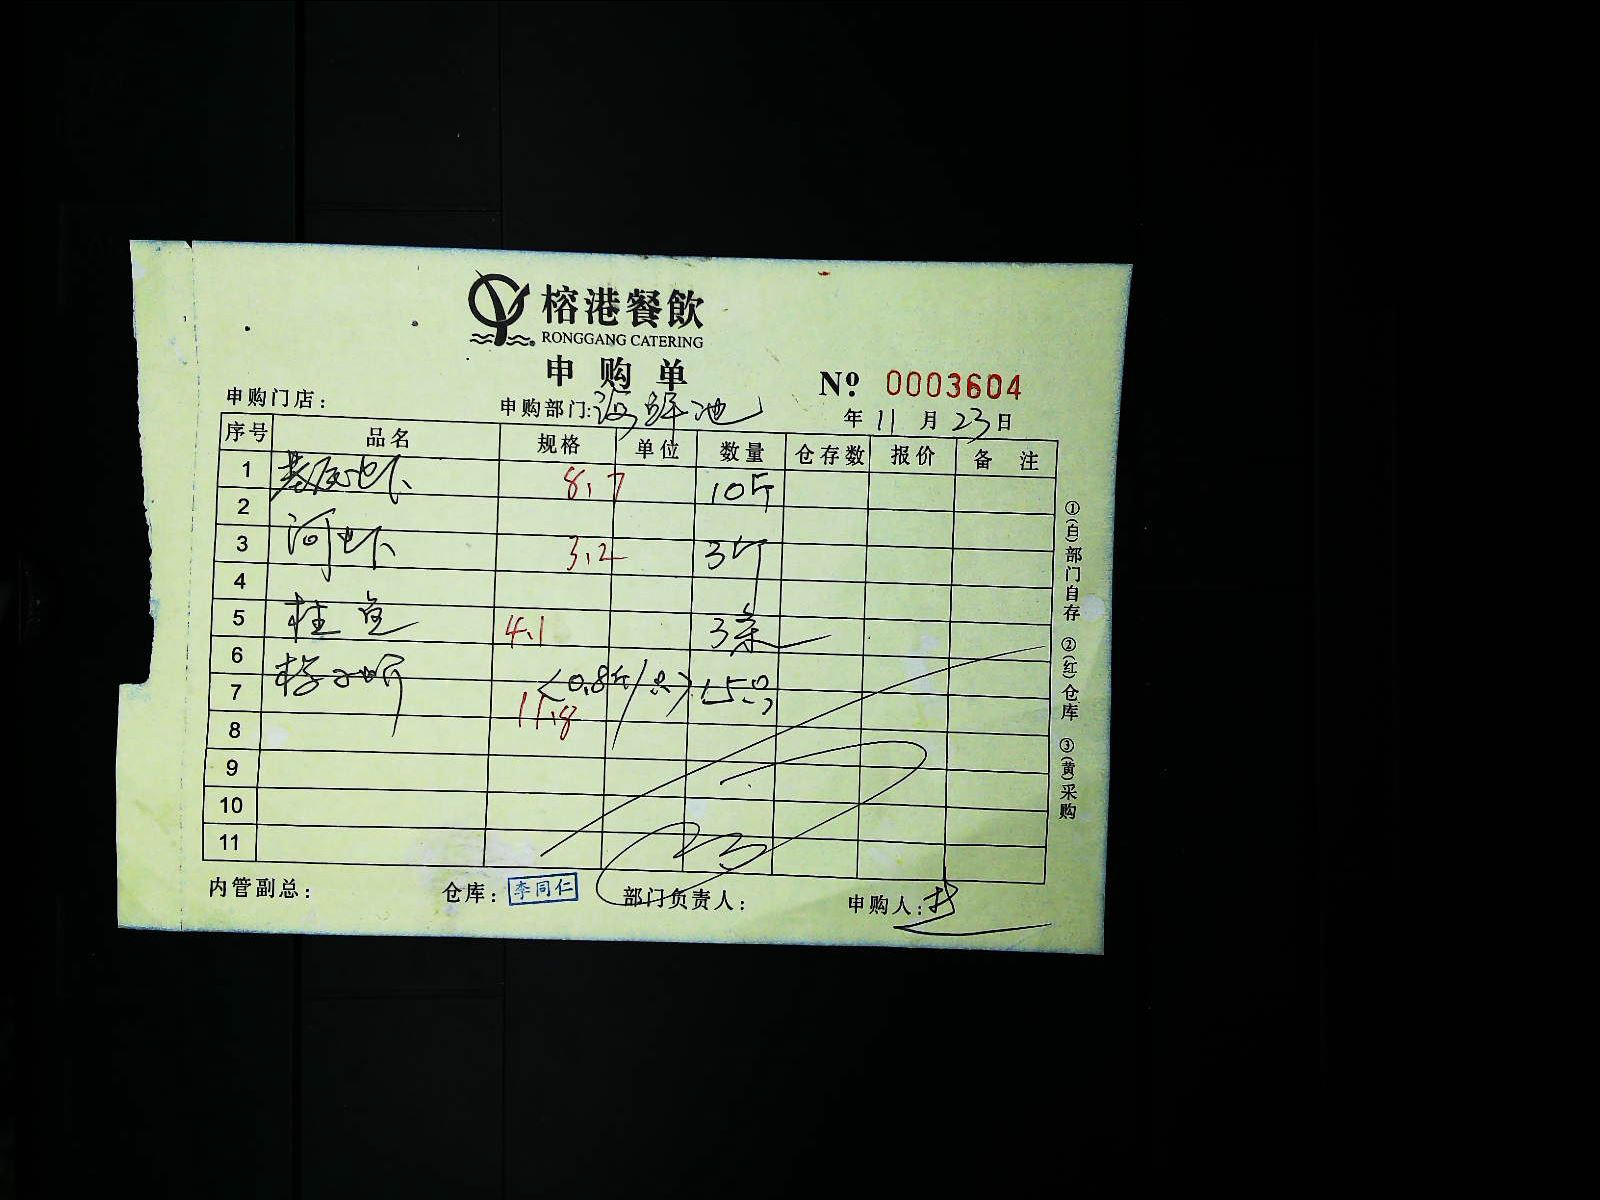 榕港餐飲
RONGGANG CATERING
申购单
№ 0003604
申购门店: 申购部门:海鲜池 年 11 月 23 日
序号 品名 规格 单位 数量 仓存数 报价 备注
1 基尾虾 8.7 10斤
2
3 河虾 3.2 3斤
4
5 桂鱼 4.1 3条
6
7 梭子蟹 (0.8斤/只) 15只
11.8
8
9
10
11
①(白)部门自存 ②(红)仓库 ③(黄)采购
内管副总: 仓库: 李同仁 部门负责人: 申购人: